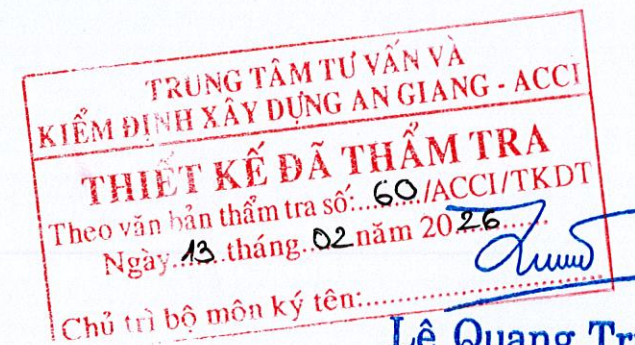 TRUNG TÂM TƯ VẤN VÀ
KIỂM ĐỊNH XÂY DỰNG AN GIANG - ACCI
THIẾT KẾ ĐÃ THẨM TRA
Theo văn bản thẩm tra số:...60.../ACCI/TKDT
Ngày..13..tháng..02 năm 2026......
Chủ trì bộ môn ký tên:...............
Lê Quang